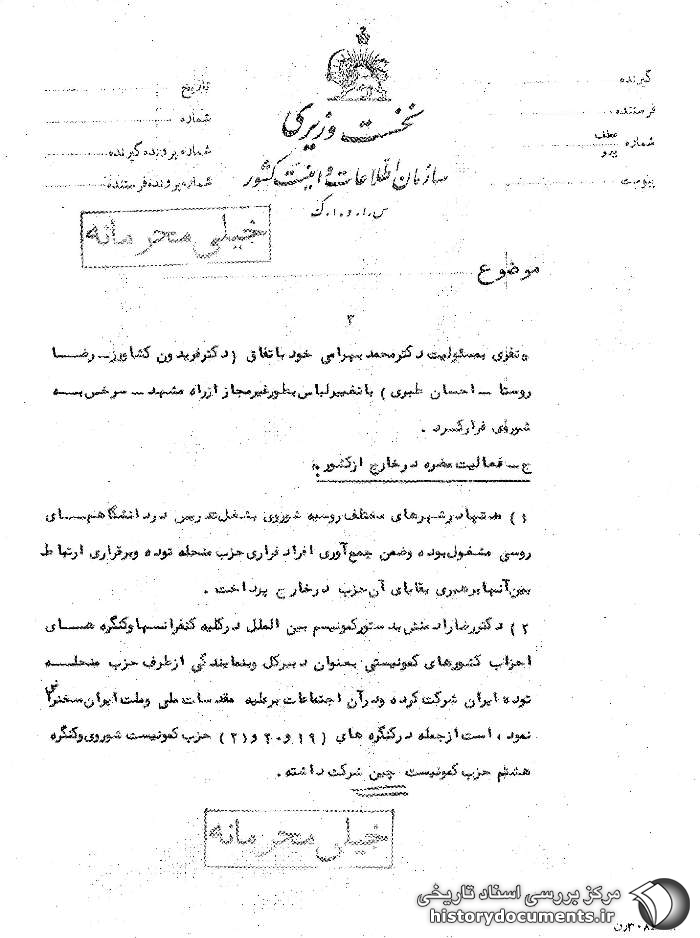 گیرنده
فرستنده
شماره عطف پیرو
پیوست
نخست وزیری
سازمان اطلاعات و امنیت کشور
س.ا.و.ا.ک
تاریخ
شماره
شماره پرونده گیرنده
شماره پرونده فرستنده
خیلی محرمانه
موضوع
۳
نفری بمسئولیت دکتر محمد بهرامی خود باتفاق (دکتر فریدون کشاورز ـ رضا
روستا ـ احسان طبری) با تغییر لباس بطور غیر مجاز از راه مشهد ـ سرخس به
شوروی فرار کرد.
ج ـ فعالیت مضره در خارج از کشور:
۱) مدتها در شهرهای مختلف روسیه شوروی بشغل تدریس در دانشگاههای
روسی مشغول بوده و ضمن جمع‌آوری افراد فراری حزب منحله توده و برقراری ارتباط
بین آنها برهبری بقایای آن حزب در خارج پرداخت.
۲) دکتر رضا رادمنش بدستور کمونیسم بین الملل در کلیه کنفرانسها و کنگره های
احزاب کشورهای کمونیستی بعنوان دبیر کل و بنمایندگی از طرف حزب منحله
توده ایران شرکت کرده و در آن اجتماعات بر علیه مقدسات ملی و ملت ایران سخنرانی
نموده است از جمله در کنگره های (۱۹ و ۲۰ و ۲۱) حزب کمونیست شوروی و کنگره
هشتم حزب کمونیست چین شرکت داشته.
خیلی محرمانه
مرکز بررسی اسناد تاریخی
historydocuments.ir